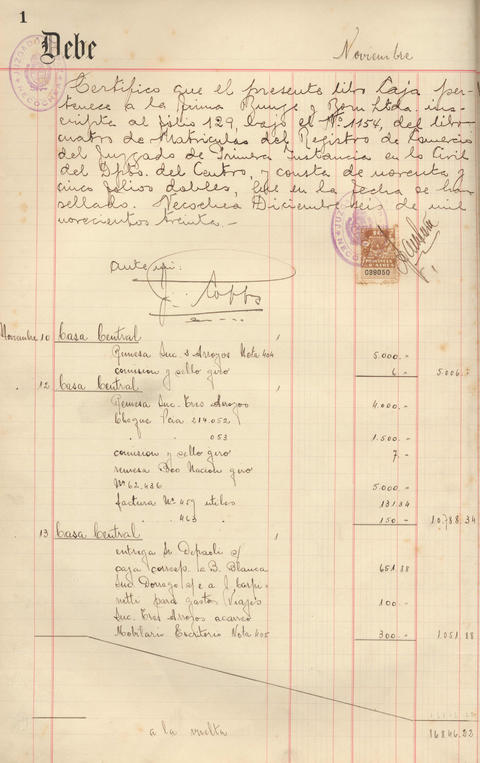 1
Debe
Noviembre
Certifico que el presente libro Caja per-
tenece a la firma Bunge y Born Ltda. ins-
cripta al folio 129, bajo el Nº 1154, del libro
cuatro de Matriculas del Registro de Comercio
del Juzgado de Primera Instancia en lo Civil
del Dpto. del Centro, y consta de noventa y
cinco folios dobles, que en la fecha se han
sellado. Necochea Diciembre seis de mil
novecientos treinta.-
C39050
ante mi:
Noviembre 10 Casa Central
Remesa Suc. 3 Arroyos Nota 404 5.000.-
comision y sello giro 6.- 5.006.-
12 Casa Central
Remesa Suc. Tres Arroyos 4.000.-
Cheque 214.052
" " 053 1.500.-
comision y sello giro 7.-
remesa Bco Nacion giro
Nº 62.436 5.000.-
factura Nº 457 utiles 131.34
" " 463 150.- 10.788.34
13 Casa Central
entrega Sr Depaoli s/
caja corresp. a B. Blanca 651.88
Suc. Dorrego s/e a J. Carpi-
netti para gastos viajes 100.-
Suc. Tres Arroyos acarreo
Mobiliario Escritorio Nota 405 300.- 1.051.88
a la vuelta 16846.22